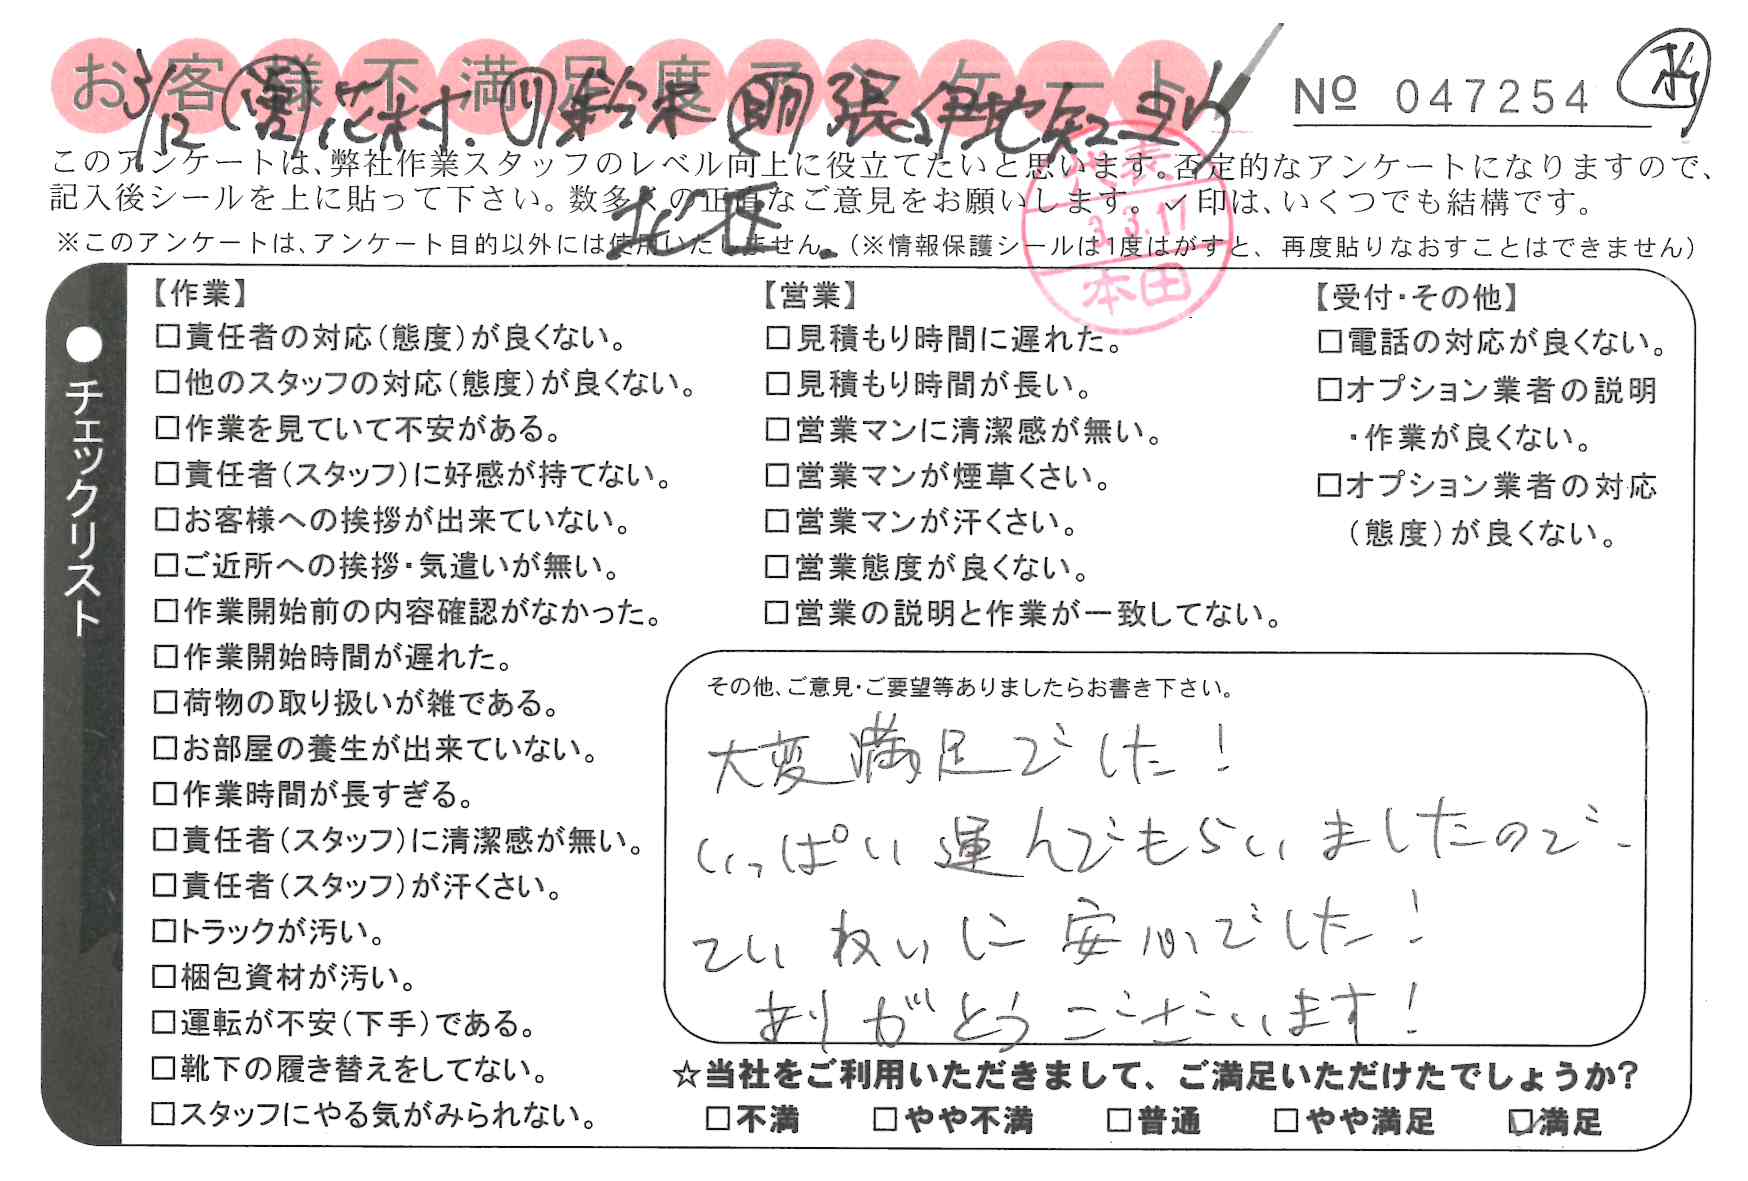 お客様不満足度アンケート
3/12 花村. 鈴木 張、伊地知当り
北在
Nº 047254
このアンケートは、弊社作業スタッフのレベル向上に役立てたいと思います。否定的なアンケートになりますので、
記入後シールを上に貼って下さい。数多くの正直なご意見をお願いします。✓印は、いくつでも結構です。
※このアンケートは、アンケート目的以外には使用いたしません。(※情報保護シールは1度はがすと、再度貼りなおすことはできません)
代表
3.3.17
本田
●チェックリスト
【作業】
□責任者の対応(態度)が良くない。
□他のスタッフの対応(態度)が良くない。
□作業を見ていて不安がある。
□責任者(スタッフ)に好感が持てない。
□お客様への挨拶が出来ていない。
□ご近所への挨拶・気遣いが無い。
□作業開始前の内容確認がなかった。
□作業開始時間が遅れた。
□荷物の取り扱いが雑である。
□お部屋の養生が出来ていない。
□作業時間が長すぎる。
□責任者(スタッフ)に清潔感が無い。
□責任者(スタッフ)が汗くさい。
□トラックが汚い。
□梱包資材が汚い。
□運転が不安(下手)である。
□靴下の履き替えをしてない。
□スタッフにやる気がみられない。
【営業】
□見積もり時間に遅れた。
□見積もり時間が長い。
□営業マンに清潔感が無い。
□営業マンが煙草くさい。
□営業マンが汗くさい。
□営業態度が良くない。
□営業の説明と作業が一致してない。
【受付・その他】
□電話の対応が良くない。
□オプション業者の説明
・作業が良くない。
□オプション業者の対応
(態度)が良くない。
その他、ご意見・ご要望等ありましたらお書き下さい。
大変満足でした!
いっぱい運んでもらいましたので、
ていねいに安心でした!
ありがとうございます!
☆当社をご利用いただきまして、ご満足いただけたでしょうか?
□不満 □やや不満 □普通 □やや満足 ☑満足